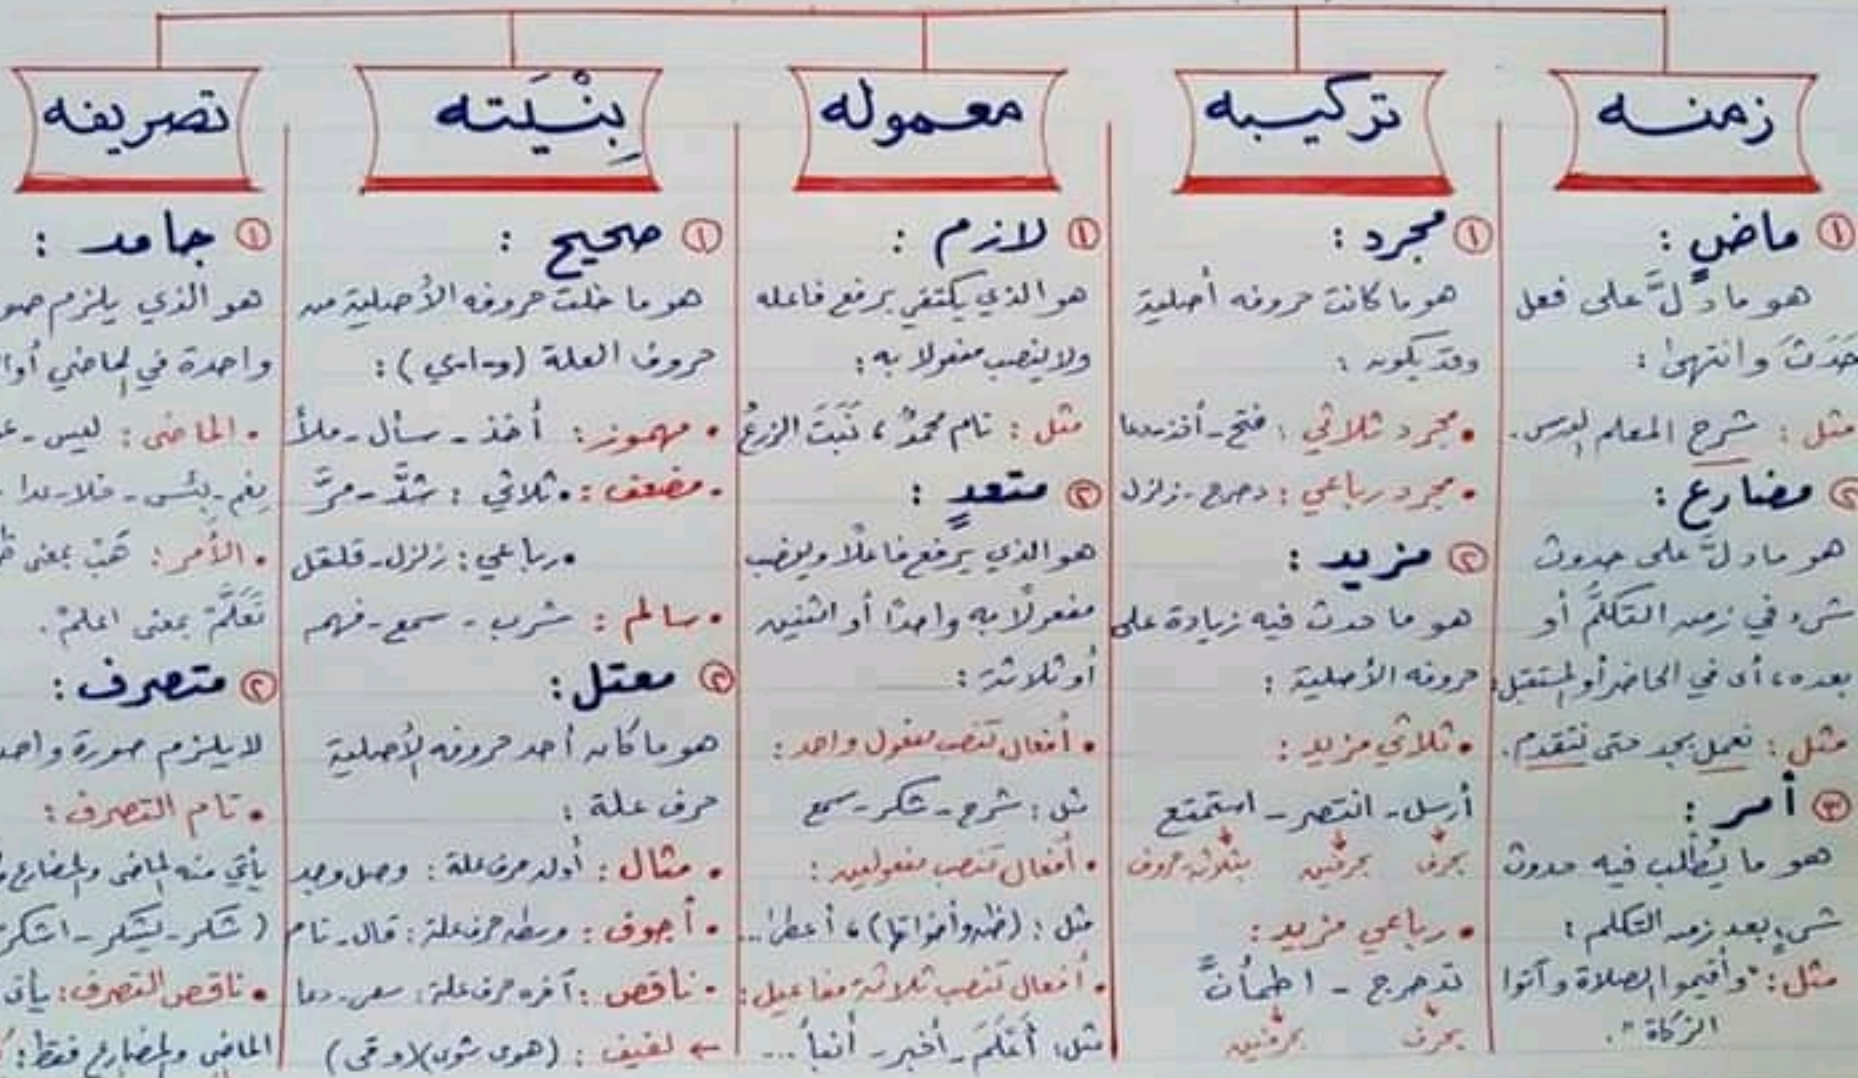 زمنه
① ماضٍ :
هو ما دلَّ على فعل
حَدَثَ وانتهى :
مثل : شرح المعلم الدرس .
② مضارع :
هو ما دلَّ على حدوث
شيء في زمن التكلُّم أو
بعده ، أي في الحاضر أو المستقبل
مثل : نعمل بجد حتى نتقدم .
③ أمر :
هو ما يُطلب فيه حدوث
شيءٍ بعد زمن التكلم :
مثل : "وأقيموا الصلاة وآتوا
الزكاة" .
تركيبه
① مجرد :
هو ما كانت حروفه أصلية
وقد يكون :
• مجرد ثلاثي : فتح - أخذ - دعا
• مجرد رباعي : دحرج - زلزل
② مزيد :
هو ما حدث فيه زيادة على
حروفه الأصلية :
• ثلاثي مزيد :
أرسل - انتصر - استمتع
بحرف بحرفين بثلاثة حروف
• رباعي مزيد :
تدحرج - اطمأنَّ
بحرف بحرفين
معموله
① لازم :
هو الذي يكتفي برفع فاعله
ولا ينصب مفعولا به :
مثل : نام محمدٌ ، نَبَتَ الزرعُ
② متعدٍ :
هو الذي يرفع فاعلًا وينصب
مفعولًا به واحدًا أو اثنين
أو ثلاثة :
• أفعال تنصب مفعول واحد :
مثل : شرح - شكر - سمع
• أفعال تنصب مفعولين :
مثل : (ظن وأخواتها) ، أعطى ...
• أفعال تنصب ثلاثة مفاعيل :
مثل : أَعْلَمَ - أخبر - أنبأ ...
بِنْيَته
① صحيح :
هو ما خلت حروفه الأصلية من
حروف العلة (و-ا-ي) :
• مهموز : أخذ - سأل - ملأ
• مضعف : • ثلاثي : شدَّ - مرَّ
• رباعي : زلزل - قلقل
• سالم : شرب - سمع - فهم
② معتل :
هو ما كان أحد حروفه الأصلية
حرف علة :
• مثال : أوله حرف علة : وصل وجد
• أجوف : وسطه حرف علة : قال - نام
• ناقص : آخره حرف علة : سعى - دعا
← لفيف : (هوى شوى) (وقى)
تصريفه
① جامد :
هو الذي يلزم صو
واحدة في الماضي أوال
• الماضي : ليس - ع
نِعْم - بئس - خلا - عدا -
• الأمر : هَبْ بمعنى ظ
تَعَلَّمْ بمعنى اعلمْ .
② متصرف :
لا يلزم صورة واحد
• تام التصرف :
يأتي منه الماضي والمضارع و
( شكر - يشكر - اشكر
• ناقص التصرف : يأتي
الماضي والمضارع فقط :